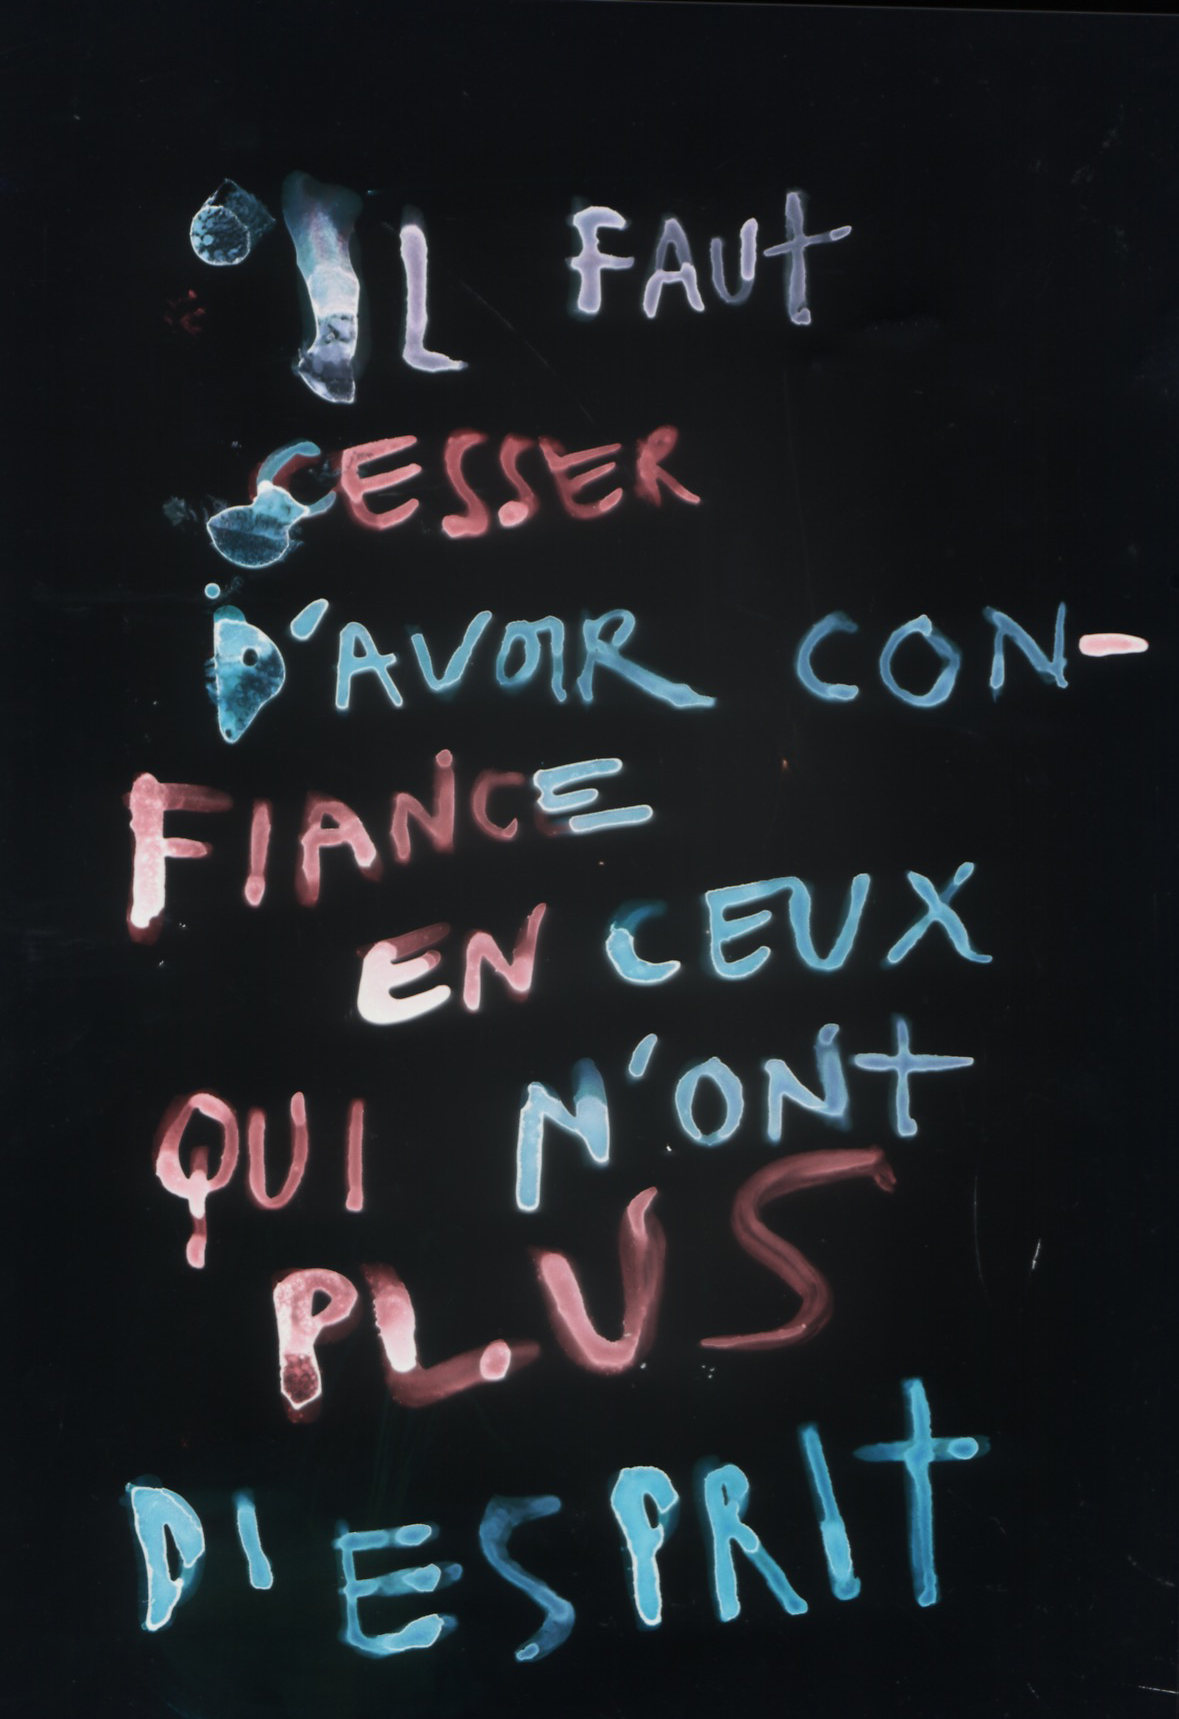 IL FAUT
CESSER
D'AVOIR CON-
FIANCE
EN CEUX
QUI N'ONT
PLUS
D'ESPRIT